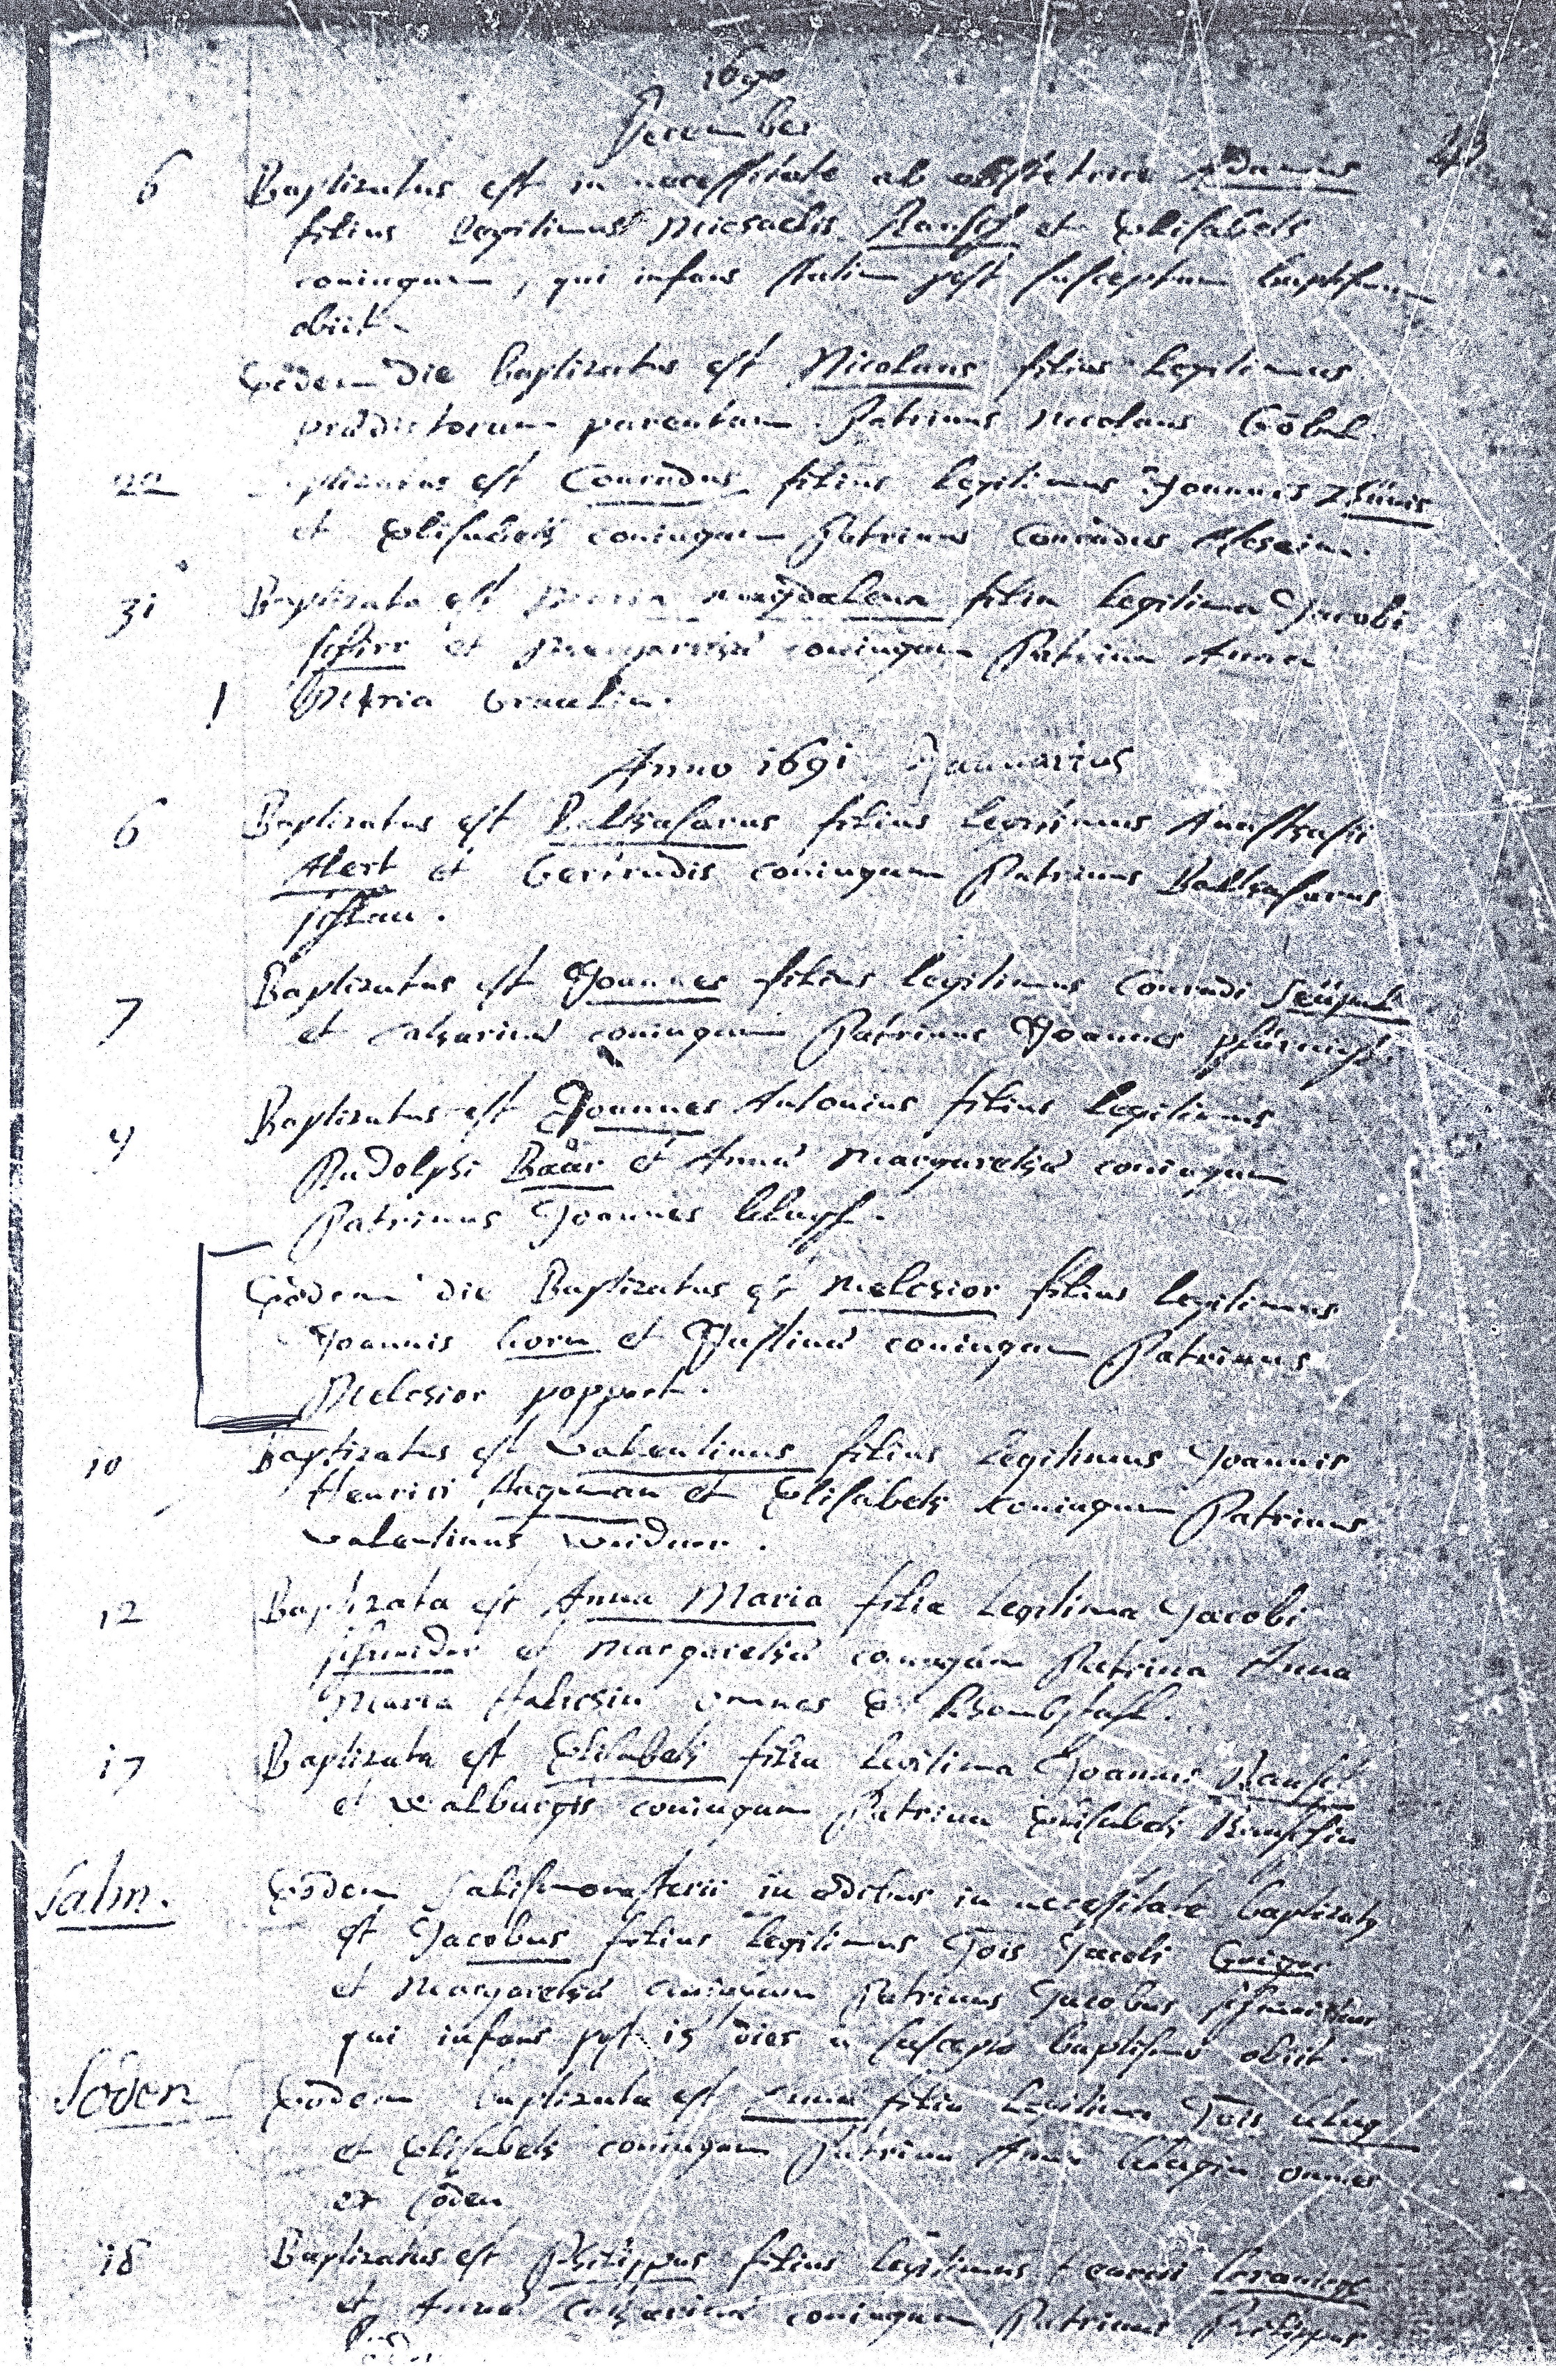 1690
December
43
6 Baptizatus est in necessitate ab obstetrice Adamus
filius legitimus Michaelis Rausch et Elisabeth
coniugum, qui infans statim post susceptum baptismum
obiit.
Eodem die baptizatus est Nicolaus filius legitimus
praedictorum parentum. Patrinus Nicolaus Göbel.
22 Baptizatus est Conradus filius legitimus Joannis
et Elisabeth coniugum Patrinus Conradus
31 Baptizata est Maria Magdalena filia legitima Jacobi
et Margarethae coniugum Patrina Anna
Maria
Anno 1691 Januarius
6 Baptizatus est Balthasarus filius legitimus Anasthasii
Alert et Gertrudis coniugum Patrinus Balthasarus
7 Baptizatus est Joannes filius legitimus Conradi
et Catharinae coniugum Patrinus Joannes
9 Baptizatus est Joannes Antonius filius legitimus
Rudolphi Baär et Annae Margarethae coniugum
Patrinus Joannes
Eodem die Baptizatus est Melchior filius legitimus
Joannis Korn et Justinae coniugum Patrinus
Melchior poppert.
10 Baptizatus est Valentinus filius legitimus Joannis
Henrici Hageman et Elisabeth coniugum Patrinus
Valentinus
12 Baptizata est Anna Maria filia legitima Jacobi
et Margarethae coniugum Patrina Anna
Maria omnes ex
17 Baptizata est Elisabeth filia legitima Joannis Rausch
et Walburgis coniugum Patrina Elisabeth Rauschin
Salm. Eodem Salismonasterii in aedibus in necessitate baptizatus
est Jacobus filius legitimus Jois Jacobi
et Margarethae coniugum Patrinus Jacobus
qui infans post 15 dies a suscepto baptismo obiit.
Soden Eodem baptizata est Anna filia legitima Jois klug
et Elisabeth coniugum Patrina Anna klugin omnes
ex Soden
18 Baptizatus est Philippus filius legitimus Henrici
et Annae Catharinae coniugum Patrinus Philippus